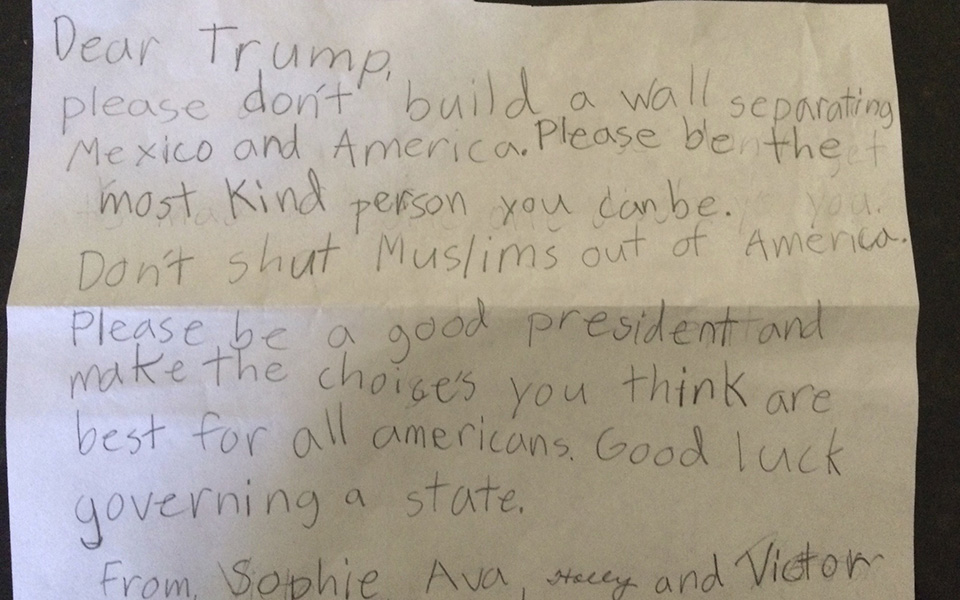 Dear Trump,
please don't build a wall separating
Mexico and America. Please be the
most kind person you can be.
Don't shut Muslims out of America.
Please be a good president and
make the choise's you think are
best for all americans. Good luck
governing a state.
From, Sophie, Ava, Holly and Victor